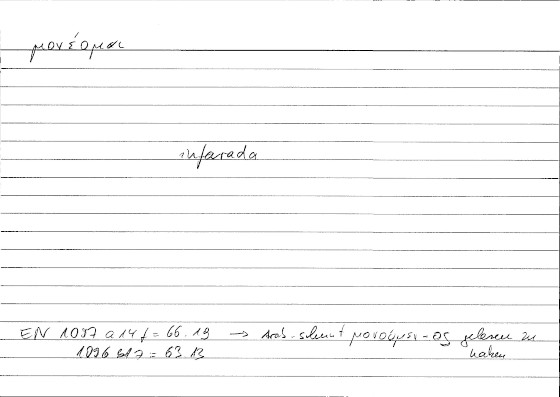 μονέομαι
infarada
EN 1097 a 14 f = 66.19 → arab. scheint μονούμεν-ος gelesen zu
1096 b 17 = 63.13 haben